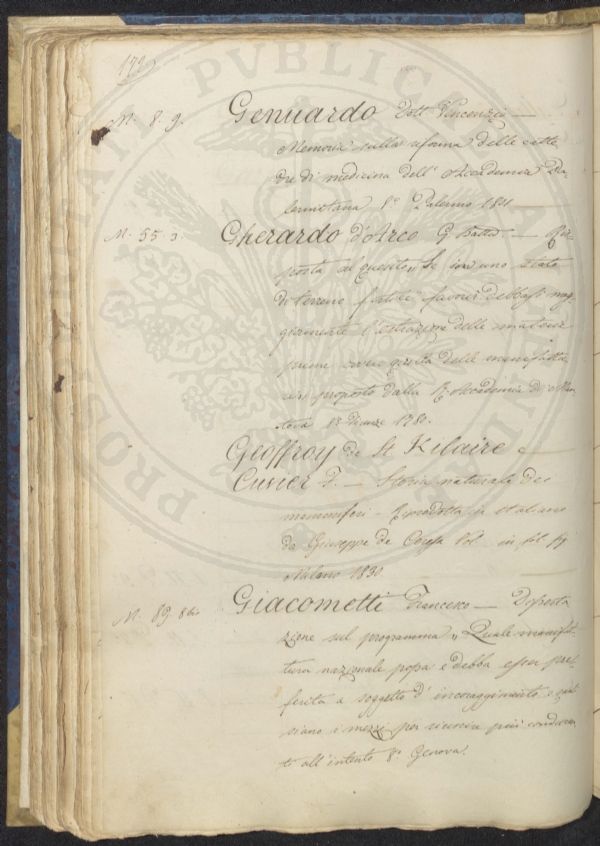 172
M. 8. 9. Genuardo Dott Vincenzo —
Memoria sulla riforma delle catte
dre di medicina dell' Accademia Pa
lermitana 8º Palermo 1801
M. 55. 3. Gherardo d'Arco G. Batta — Ris
posta al quesito „ Se in uno stato
di terreno fertile favorir debbasi mag
giormente l'estrazione delle materie
prime ovvero quella delle manifattu
re proposto dalla R. Accademia di Man
tova 8º Firenze 1780.
Geoffroy de St Hilaire e
Cuvier F. — Storia naturale dei
mammiferi — Riprodotta in italiano
da Giuseppe de Cerefa Vol in fol fig
Milano 1830
M. 89. 8bis Giacometti Francesco — Disserta
zione sul programma „ Quale manifat
tura nazionale possa e debba esser pre
ferita a soggetto d' incoraggimento e quai
siano i mezzi per riuscire più conducen
ti all' intento 8º Genova.
PROSPERITATI PUBLICAE AUGENDAE